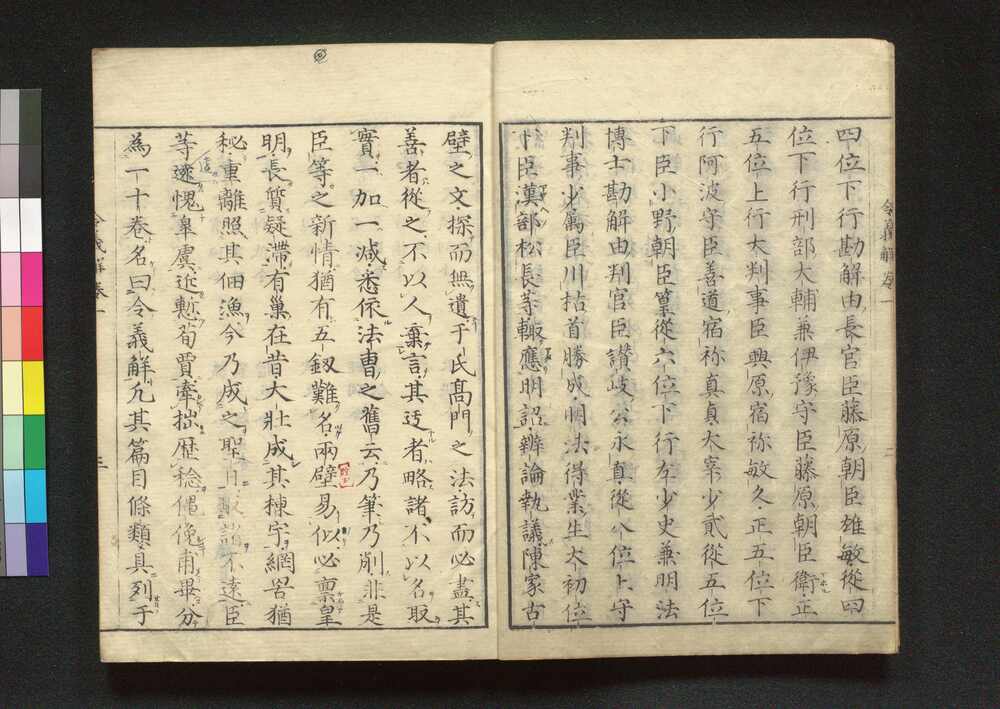 四位下行勘解由長官臣藤原朝臣雄敏從四
位下行刑部大輔兼伊豫守臣藤原朝臣衛正
五位上行大判事臣興原宿祢敏久正五位下
行阿波守臣善道宿祢真貞大宰少貳從五位
下臣小野朝臣篁從六位下行左少史兼明法
博士勘解由判官臣讃岐公永直從八位上守
判事少属臣川枯首勝成明法得業生大初位
下臣漢部松長等輙應明詔辨論執議陳家古
壁之文探而無遺于氏髙門之法訪而必盡其
善者從之不以人棄言其迃者略諸不以名取
實一加一减悉依法曹之舊云乃筆乃削非是
臣等之新情猶有五劔難名兩壁易似必禀皇
明長質疑滞有巢在昔大壯成其棟宇網罟猶
秘重離照其佃漁今乃成之聖日取諸不遠臣
等遠愧皐虞近慙荀賈牽拙歴稔僶俛甫畢分
為一十卷名曰令義解凢其篇目條類具列于